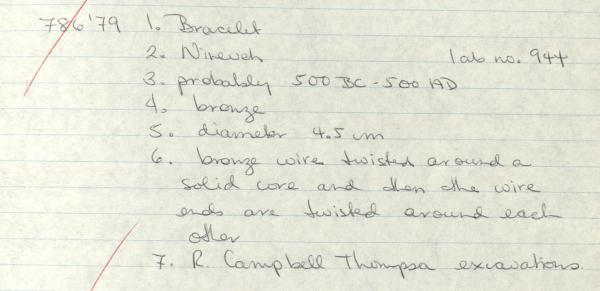 786'79 1. Bracelet
2. Nineveh lab no. 944
3. probably 500 BC - 500 AD
4. bronze
5. diameter 4.5 cm
6. bronze wire twisted around a
solid core and then the wire
ends are twisted around each
other
7. R. Campbell Thompson excavations.